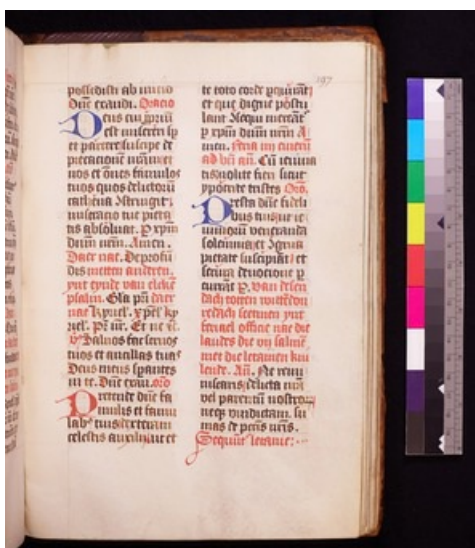 197
possedisti ab inicio
Dñe exaudi. Oracio
Deus cui ꝓpriū
est misereri sp̄
et parcere suscipe de
precacionē nr̄am et
nos et om̄es famulos
tuos quos delictorū
cathena ꝯstringit
miseracio tue pieta
tis absoluat. P xp̄m
dnūm nrm̄. Amen.
Daer nae. De profū
dis metten anderen
ynt eynde van elcken
psalm. Gl̄a pr̄i daer
nae kyriel. xp̄el ky
riel. Pr̄ nr̄. Et ne
Saluos fac seruos
tuos et ancillas tuas
Deus meus sperantes
in te. Dñe exau. oro
Pretende dñe fa
mulis et famu
labꝰ tuis dexteram
celestis auxilij ut et
te toto corde ꝑquirāt
et que digne postu
lant ꝯsequi mereāt
P xp̄m dnūm nrm̄ A
men. Feria iiij cinerū
ad vn̄ an̄. Cū ieiuna
tis nolite fieri sicut
ypocrite tristes Oro.
Presta dñe fideli
bus tuis ut ie
iuniorū veneranda
solemnia et ꝯgrua
pietate suscipiāt et
secura deuocione ꝑ
currant P. Van desen
dach totten wittēdon
redach seitmen ynt
feriael officie nae die
laudes die vij salmē
met die letanien knie
lende. An̄. Ne remi
niscaris delicta nr̄a
vel parentū nostroꝝ
neqꝫ vindictam su
mas de pctis nr̄is.
Sequūt letanie: